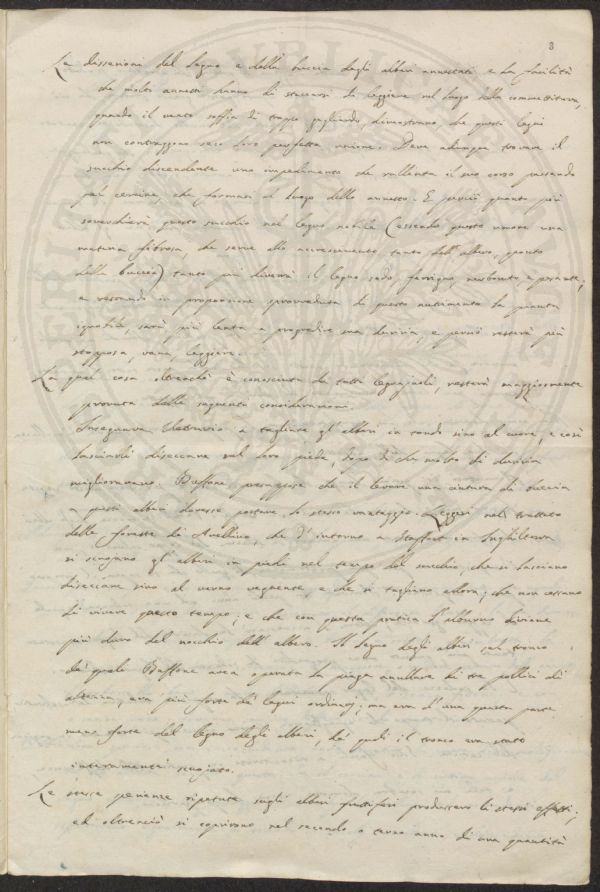 3
Le dissezioni del legno e della buccia degli alberi annestati e la facilità
che molti annesti hanno di staccarsi di leggiere nel luogo della commettitura,
quando il vento soffia di troppo gagliardo, dimostrano che questi legni
non contraggono seco loro perfetta unione. Deve adunque trovare il
succhio discendente uno impedimento che rallenta il suo corso passando
pel cercine, che formasi al luogo dello annesto. E perciò quanto più
soverchierà questo succhio nel legno nobile (essendo questo umore una
materia fibrosa, che serve allo accrescimento, tanto dell'albero, quanto
della buccia) tanto più diverrà il legno sodo, ferrigno, nerboruto e pesante;
e restando in proporzione sprovveduta di questo nutrimento la pianta
ignobile, sarà più lenta a progredire in durezza, e perciò resterà più
stopposa, vana, leggiere.
La qual cosa oltrechè è conosciuta da tutti legnajuoli, resterà maggiormente
provata dalle seguenti considerazioni.
Insegnava Vetruvio a tagliare gl'alberi in tondo sino al cuore, e così
lasciarli diseccare sul loro piede, dopo di che molto di durezza
miglioravano. Buffone presuppose che il levare una cintura di buccia
a questi alberi dovesse portare lo stesso vantaggio. Leggesi nel trattato
delle foreste di Avellino, che d'intorno a Staffort in Inghilterra
si scorzano gl'alberi in piede nel tempo del succhio, che si lasciano
diseccare sino al verno vegnente, e che si tagliano allora; che non cessano
di vivere questo tempo; e che con questa pratica l'alburno diviene
più duro del nocchio dell'albero. Il legno degli alberi, sul tronco
de' quali Buffone avea operata la piaga annullare di tre pollici di
altezza, era più forte de' legni ordinarj; ma era d'una quarta parte
meno forte del legno degli alberi, de' quali il tronco era stato
interamente scorzato.
Le stesse sperienze ripetute sugli alberi fruttiferi produssero li stessi effetti;
ed oltrecciò si coprirono nel secondo o terzo anno di una quantità